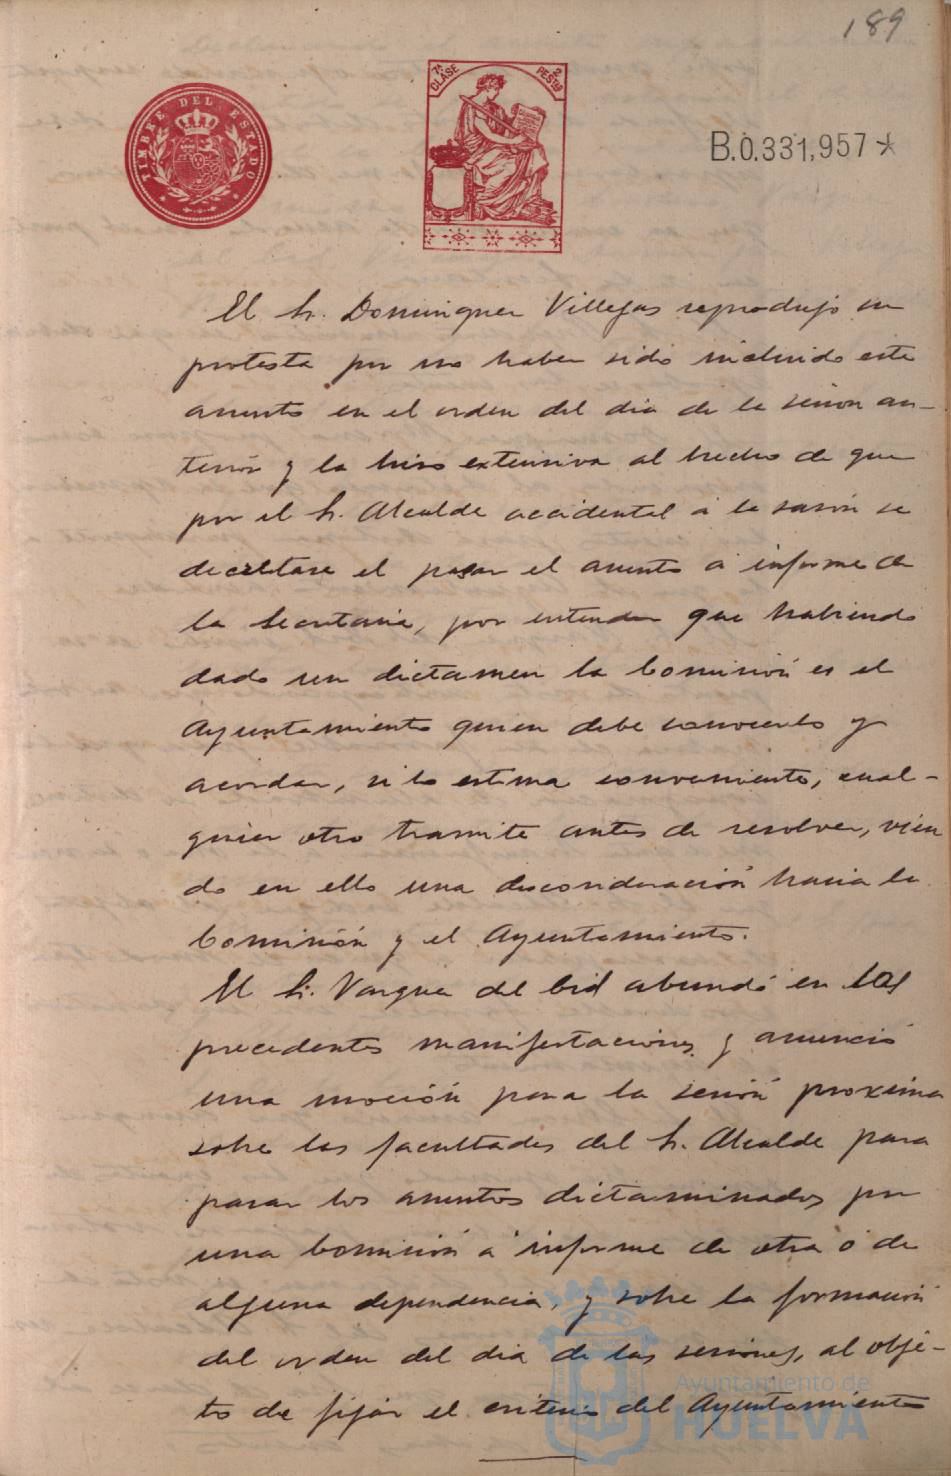 189
TIMBRE DEL ESTADO
7ª CLASE
2 PESTAS
B.0.331,957*
El Sr. Dominguez Villegas reprodujo su
protesta por no haber sido incluido este
asunto en el orden del dia de la sesion an-
terior y la hizo extensiva al hecho de que
por el Sr. Alcalde accidental á la sazón se
decretase el pasar el asunto a informe de
la Secretaria, por entender que habiendo
dado un dictamen la Comisión es el
Ayuntamiento quien debe conocerlo y
acordar, si lo estima conveniente, cual-
quier otro tramite antes de resolver, vien
do en ello una desconsideración hacia la
Comisión y el Ayuntamiento.
El Sr. Vazquez del Cid abundó en las
precedentes manifestaciones y anunció
una moción para la sesión proxima
sobre las facultades del Sr. Alcalde para
pasar los asuntos dictaminados por
una Comisión á informe de otra ó de
alguna dependencia, y sobre la formación
del orden del dia de las sesiones, al obje-
to de fijar el criterio del Ayuntamiento
Ayuntamiento de
HUELVA